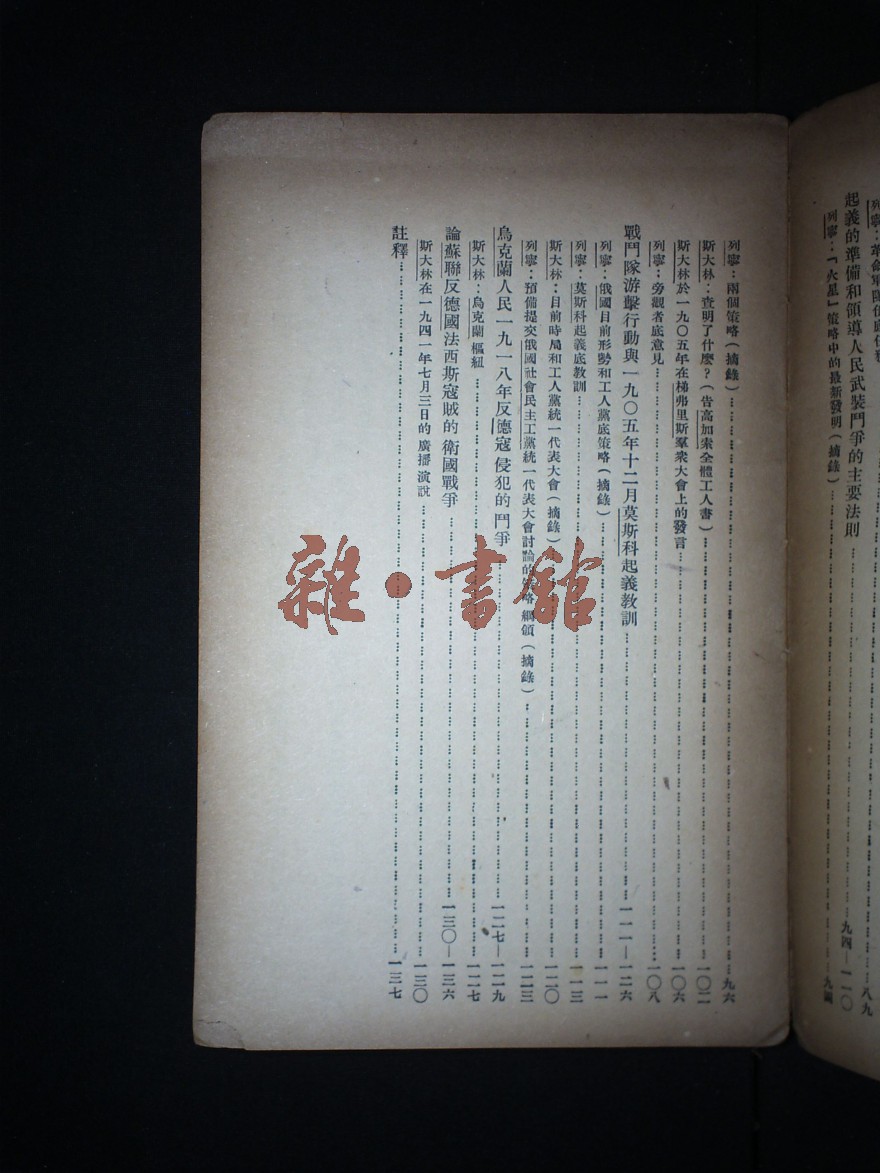 列寧：革命軍隊底任務……八九
起義的準備和領導人民武裝鬥爭的主要法則……九四—一一〇
列寧：「火星」策略中的最新發明（摘錄）……九四
列寧：兩個策略（摘錄）……九六
斯大林：查明了什麽？（告高加索全體工人書）……一〇二
斯大林於一九〇五年在梯弗里斯羣衆大會上的發言……一〇六
列寧：旁觀者底意見……一〇八
戰鬥隊游擊行動與一九〇五年十二月莫斯科起義教訓……一一一—一二六
列寧：俄國目前形勢和工人黨底策略（摘錄）……一一一
列寧：莫斯科起義底教訓……一一三
斯大林：目前時局和工人黨統一代表大會（摘錄）……一二〇
列寧：預備提交俄國社會民主工黨統一代表大會討論的策略綱領（摘錄）……一二三
烏克蘭人民一九一八年反德寇侵犯的鬥爭……一二七—一二九
斯大林：烏克蘭樞紐……一二七
論蘇聯反德國法西斯寇賊的衛國戰爭……一三〇—一三六
斯大林在一九四一年七月三日的廣播演說……一三〇
註釋……一三七
雜·書館